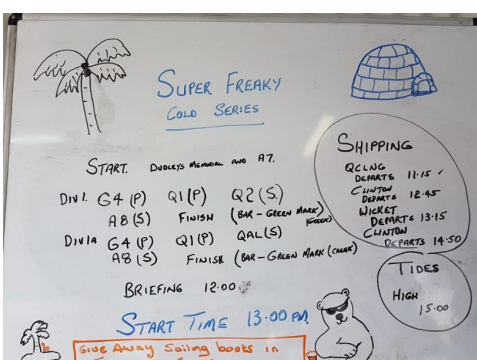 SUPER FREAKY
COLD SERIES
START. DUDLEYS MEMORIAL AND A7.
DIV 1. G4 (P) Q1 (P) Q2 (S.)
A8 (S) FINISH (BAR - GREEN MARK)
(CREEK)
DIV 1A G4 (P) Q1 (P) QAL (S)
A8 (S) FINISH (BAR - GREEN MARK (CREEK)
BRIEFING 12.00
START TIME 13.00 PM.
Give Away Sailing books in
SHIPPING
QCLNG
DEPARTS 11.15
CLINTON
DEPARTS 12.45
WICKET
DEPARTS 13.15
CLINTON
DEPARTS 14.50
TIDES
HIGH
15.00